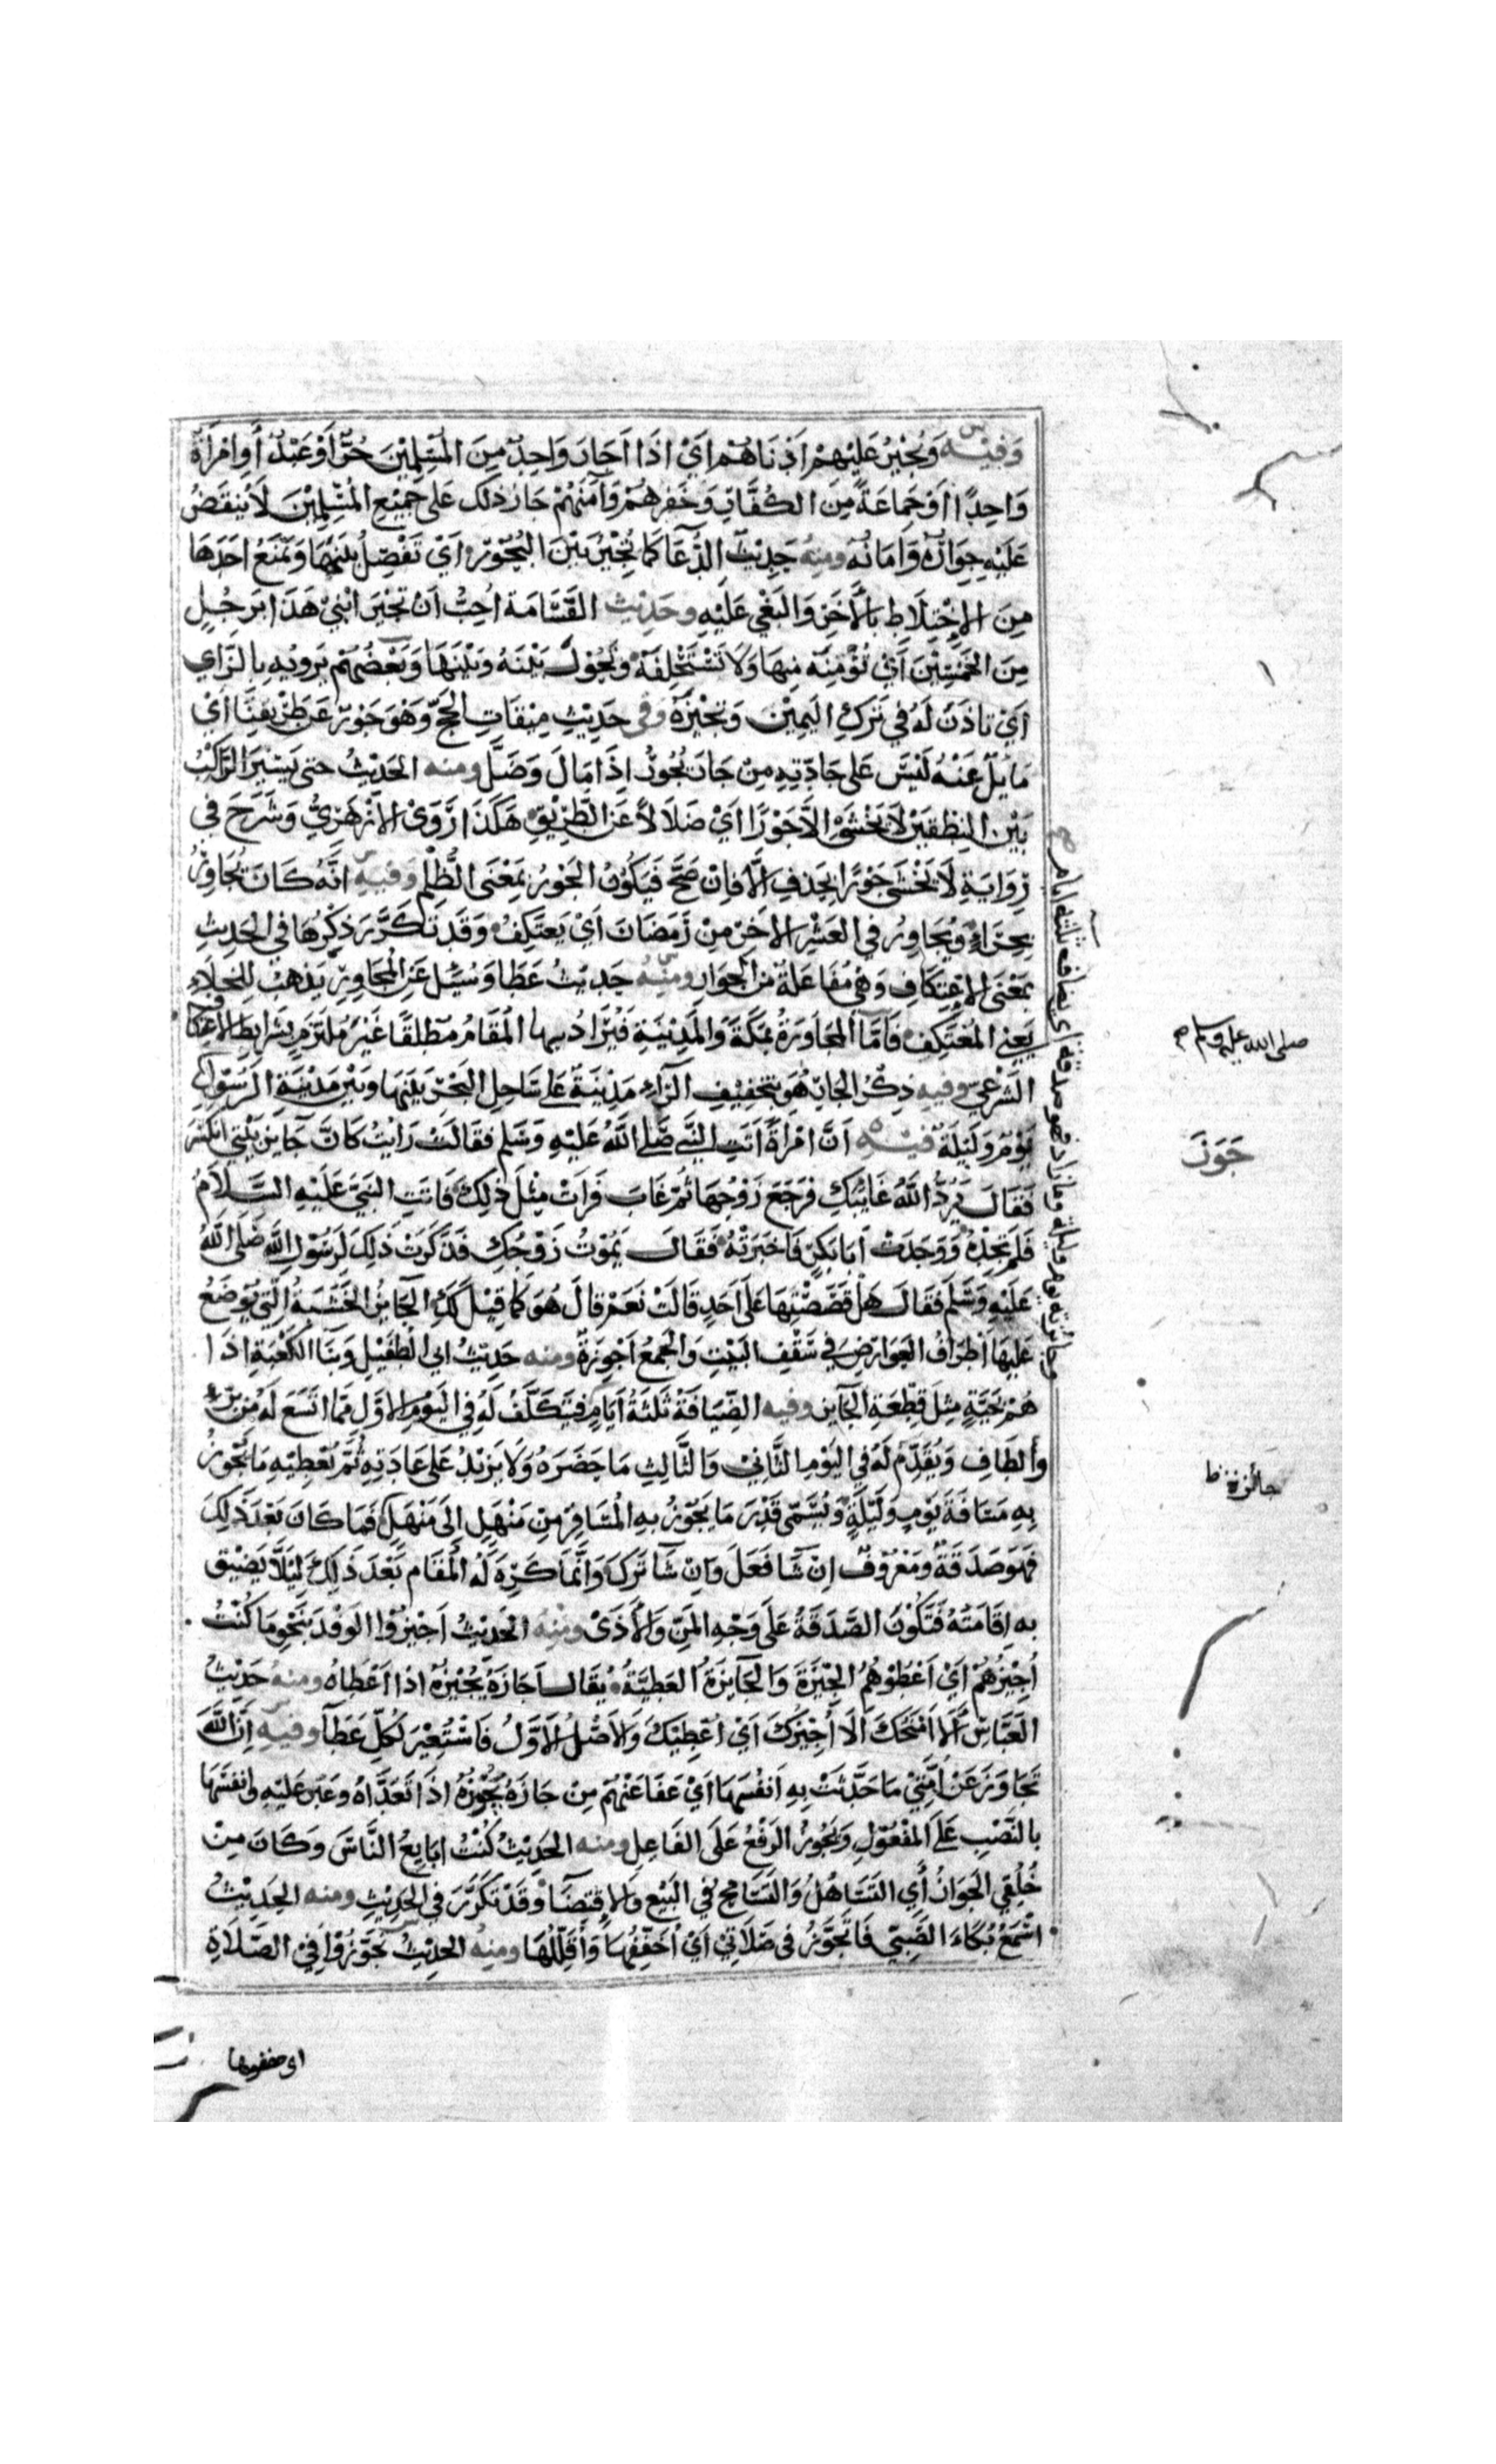 وَفِيْهِ وَيُجِيْرُ عَلَيْهِمْ اَدْنَاهُمْ اَيْ اِذَا اَجَارَ وَاحِدٌ مِنَ الْمُسْلِمِيْنَ حُرٌّ اَوْ عَبْدٌ أَوِ امْرَأَةٌ
وَاحِدًا اَوْ جَمَاعَةً مِنَ الكُفَّارِ وَخَفَرَهُمْ وَآمَنَهُمْ جَازَ ذلك عَلى جَمِيْعِ الْمُسْلِمِيْنَ لَا يُنْقَضُ
عَلَيْهِ جِوَارُهُ وَاَمَانُهُ ومِنْهُ حَدِيْثُ الدُّعَا كَمَا تُجِيْرُ بَيْنَ الْبُحُوْرِ اَيْ تَفْصِلُ بَيْنَهَا وَتَمْنَعُ اَحَدَهَا
مِنَ الاِخْتِلَاطِ بِالْآخَرِ وَالْبَغْيِ عَلَيْهِ وحَدِيْث القَسَامَة اُحِبُّ اَنْ تُجِيْرَ ابْنِيْ هَذَا بِرَجُلٍ
مِنَ الْخَمْسِيْنَ اَيْ تُؤْمِنَهُ مِنهَا وَلَا تَسْتَحْلِفَهُ وتَحُوْلَ بَيْنَهُ وَبَيْنَهَا وَبَعْضُهُمْ يَرويْهِ بِالزَّايِ
اَيْ تَاذَنَ لَهُ فِي تَرْكِ اليَمِيْنِ وَتُجِيْزَهُ وَفي حَدِيْثِ مِيْقَاتِ الْحَجِّ وَهُوَ جَوْرٌ عَن طَرِيْقِنَا اَيْ
مَائِلٌ عَنْهُ لَيْسَ عَلى جَادّتِهِ مِنْ جَارَ يَجُوْرُ اِذَا مَالَ وَضَلَّ ومنه الحَدِيْثُ حتى يَسِيْرَ الرَّاكِبُ
بَيْنَ النُّطْفَتَيْنِ لَا يَخْشَى اِلَّا جَوْرًا اَيْ ضَلَالاً عَنِ الطَّرِيْقِ هَكَذَا رَوَى الاَزْهَرِيُّ وَشَرَحَ فِي
رِوَايَةِ لَا يَخْشَى جَوْرًا بِحَذفِ اِلَّا فَاِنْ صَحَّ فَيَكُوْنُ الْجَوْرُ بِمَعْنَى الظُّلْمِ وَفيه اَنَّهُ كَانَ يُجَاوِرُ
بِحِرَاءٍ وَيُجَاوِرُ فِي العَشْرِ الاَخِرِ مِنْ رَمَضَانَ اَيْ يَعتَكِفُ وَقَدْ تَكَرَّرَ ذِكْرُهَا فِي الْحَدِيثِ
بِمَعْنَى الاِعْتِكَافِ وَهِيَ مُفَاعَلَةٌ مِنَ الْجِوَارِ ومنه حَدِيْثُ عَطَا وَسُئِلَ عَنِ الْمُجَاوِرِ يَذهَبُ لِلْخَلَاءِ
يَعنِي الْمُعْتَكِفَ فَاَمَّا الْمُجَاوَرَةُ بِمَكَّةَ وَالْمَدِيْنَةِ فَيُرَادُ بِهَا الْمُقَامُ مُطْلَقًا غَيْرَ مُلْتَزَمٍ بِشَرَايِطِ الاعْتِكَافِ
الشَّرْعِيّ وفِيهِ ذِكْرُ الجَارِ هُوَ بِتَخْفِيْفِ الرَّاءِ مَدِيْنَةٌ عَلى سَاحِلِ الْبَحْرِ بَيْنَهَا وبَيْنَ مَدِيْنَةِ الرَّسُوْلِ
يَوْمٌ وَلَيْلَةٌ فِيْهِ اَنَّ امْرَأَةً اَتَتِ النَّبِيَّ صَلَّى اللَّهُ عَلَيْهِ وَسَلَّمَ فَقَالَتْ رَاَيْتُ كَانَّ جَايِزَ بَيْتِي انْكَسَرَ
فَقَالَ يَرُدُّ اللَّهُ غَايِبَكِ فَرَجَعَ زَوْجُهَا ثُمَّ غَابَ فَرَاَتْ مِثْلَ ذلِكَ فَاَتَتِ النَّبِيَّ عَلَيْهِ السَّلَامُ
فَلَمْ تَجِدْهُ وَوَجَدَتْ اَبَا بَكْرٍ فَاَخْبَرَتْهُ فَقَالَ يَمُوْتُ زَوْجُكِ فَذَكَرَتْ ذَلِكَ لِرَسُوْلِ اللَّهِ صَلَّى اللَّهُ
عَلَيْهِ وَسَلَّمَ فَقَالَ هَلْ قَصَصْتِهَا عَلَى اَحَدٍ قَالَتْ نَعَمْ قَالَ هُوَ كَمَا قِيْلَ لَكِ الْجَايِزُ الْخَشَبَةُ الَّتِيْ يُوْضَعُ
عَلَيْهَا اَطْرَافُ الْعَوَارِضِ فِي سَقْفِ البَيْتِ وَالْجَمْعُ اَجْوِزَةٌ ومنه حَدِيْثُ ابي الطُّفَيْلِ وَبِنَا الْكَعْبَةِ اِذَا
هُمْ بِحَيَّةٍ مِثْلَ قِطْعَةِ الْجَايِزِ وفيه الضِّيَافَةُ ثَلَثَةُ اَيَّامٍ فَيَتَكَلَّفُ لَهُ فِي الْيَوْمِ الاَوَّلِ مِمَّا اتَّسَعَ لَهُ مِنْ بِرٍّ
وأَلطَافٍ وَيُقَدِّمُ لَهُ فِي الْيَوْمِ الثَّانِيْ وَالثَّالِثِ مَا حَضَرَهُ وَلَا يَزِيْدُ عَلى عَادَتِهِ ثُمَّ يُعْطِيْهِ مَا يَجُوْزُ
بِهِ مَسَافَةَ يَوْمٍ وَلَيْلَةٍ وَيُسَمَّى قَدْرَ مَا يَجُوْزُ بِهِ الْمُسَافِرُ مِنْ مَنْهَلٍ اِلَى مَنْهَلٍ فَمَا كَانَ بَعْدَ ذَلِكَ
فَهُوَ صَدَقَةٌ وَمَعْرُوْفٌ اِنْ شَا فَعَلَ وَاِنْ شَا تَرَكَ وَاِنَّمَا كَرِهَ لَهُ الْمُقَامَ بَعْدَ ذَلِكَ لِئَلَّا يَضِيْقَ
بِهِ اِقَامَتُهُ فَتَكُوْنَ الصَّدَقَةُ عَلَى وَجْهِ الْمَنِّ وَالْاَذَى ومنه الْحَدِيْثُ اَجِيْزُوْا الوَفْدَ بِنَحْوِ مَا كُنْتُ
اُجِيْزُهُمْ اَيْ اَعْطُوْهُمُ الْجِيْزَةَ وَالْجَايِزَةُ الْعَطِيَّةُ يُقَالُ اَجَازَهُ يُجِيْزُهُ اِذَا اَعْطَاهُ ومنه حَدِيْثُ
الْعَبَّاسِ اَلَا اَمْنَحُكَ اَلَا اُجِيْزُكَ اَيْ اُعْطِيْكَ وَالاَصْلُ الاَوَّلُ فَاسْتُعِيْرَ لِكُلِّ عَطَآءٍ وفيه اِنَّ اللَّهَ
تَجَاوَزَ عَنْ اُمَّتِيْ مَا حَدَّثَتْ بِهِ اَنْفُسَهَا اَيْ عَفَا عَنْهُمْ مِنْ جَازَهُ يَجُوْزُهُ اِذَا تَعَدَّاهُ وعَبَرَ عَلَيْهِ وانفسَهَا
بِالنَّصْبِ عَلَى الْمَفْعُوْلِ وَيَجُوْزُ الرَّفْعُ عَلَى الفَاعِلِ ومنه الحَدِيْثُ كُنْتُ اُبَايِعُ النَّاسَ وَكَانَ مِنْ
خُلُقِي الْجَوَازُ أَيِ التَّسَاهُلُ وَالتَّسَامُحُ فِي الْبَيْعِ وَالاِقتِضَآءِ وَقَدْ تَكَرَّرَ فِي الْحَدِيْثِ ومنه الحَدِيْثُ
اَسْمَعُ بُكَاءَ الصَّبِيِّ فَاَتَجَوَّزُ فِي صَلَاتِيْ اَيْ اُخَفِّفُهَا وَاُقَلِّلُهَا ومِنْهُ الحَدِيْثُ تَجَوَّزُوْا فِيْ الصَّلَاةِ
صلى الله عليه وسلم
جَوَزَ
جائزته ط
اي خففوها